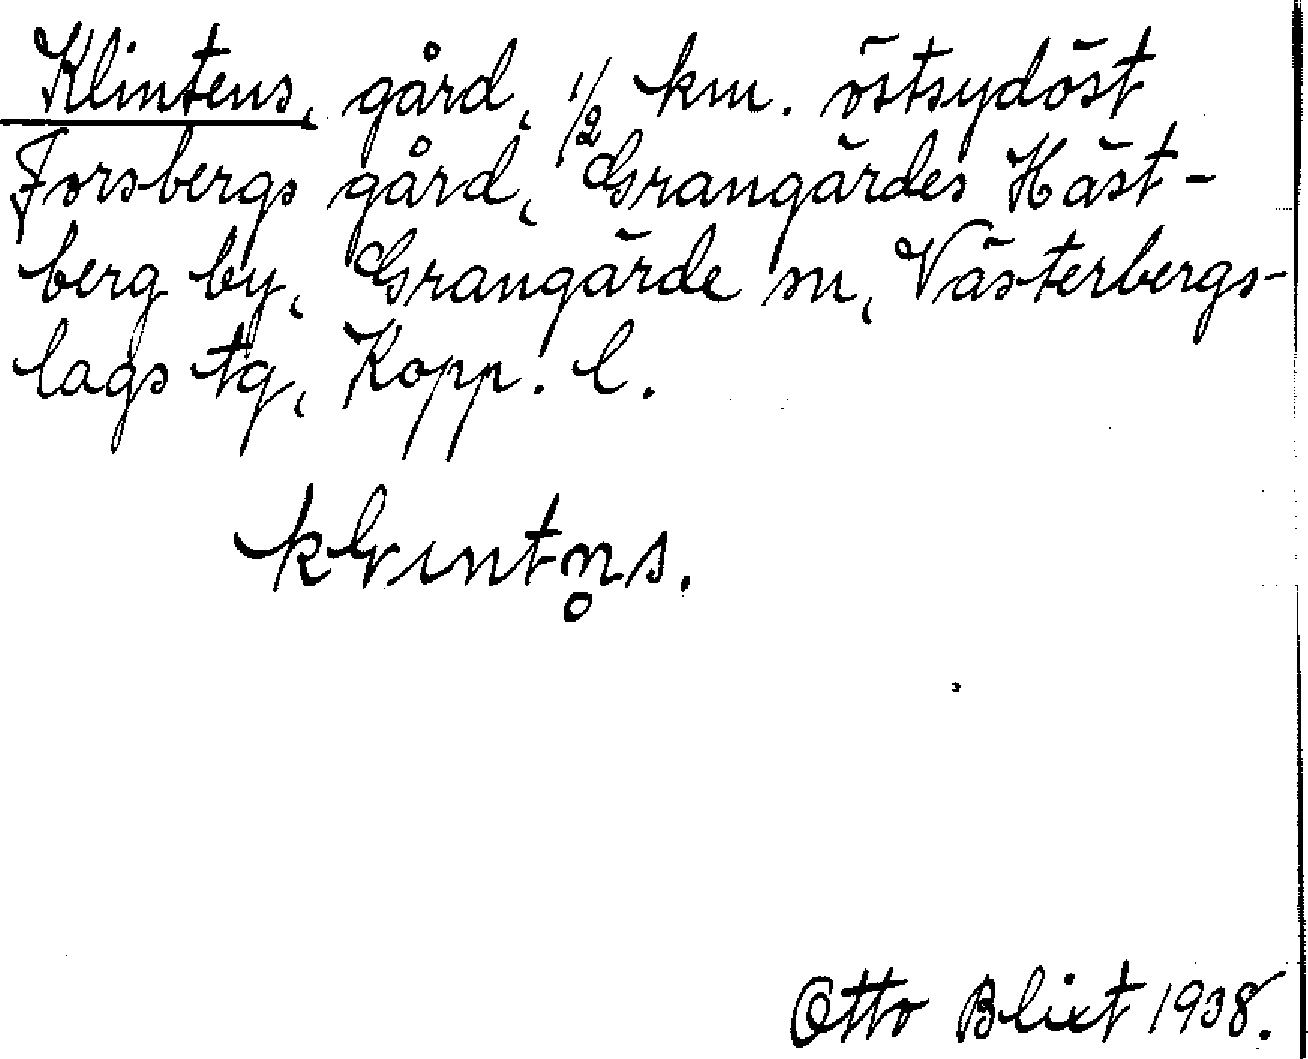 Klintens, gård, 1/2 km. östsydöst
Forsbergs gård, Grangärdes Häst-
berg by, Grangärde sn, Västerbergs-
lags tg, Kopp. l.
klıntn̥s.
Otto Blixt 1938.